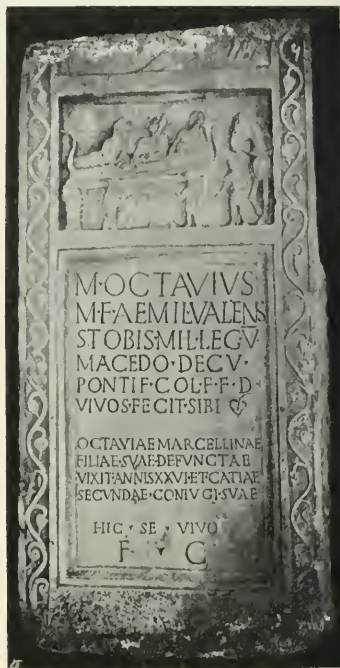 M·OCTAVIVS
M·F·AEMIL·VALENS
STOBIS·MIL·LEG·V·
MACEDO·DECV·
PONTIF·COL·F·F·D·
VIVOS·FECIT·SIBI
OCTAVIAE MARCELLINAE
FILIAE·SVAE·DEFVNCTAE
VIXIT·ANNIS XXVI·ET·CATIAE
SECVNDAE·CONIVGI·SVAE
HIC·SE·VIVO
F·C